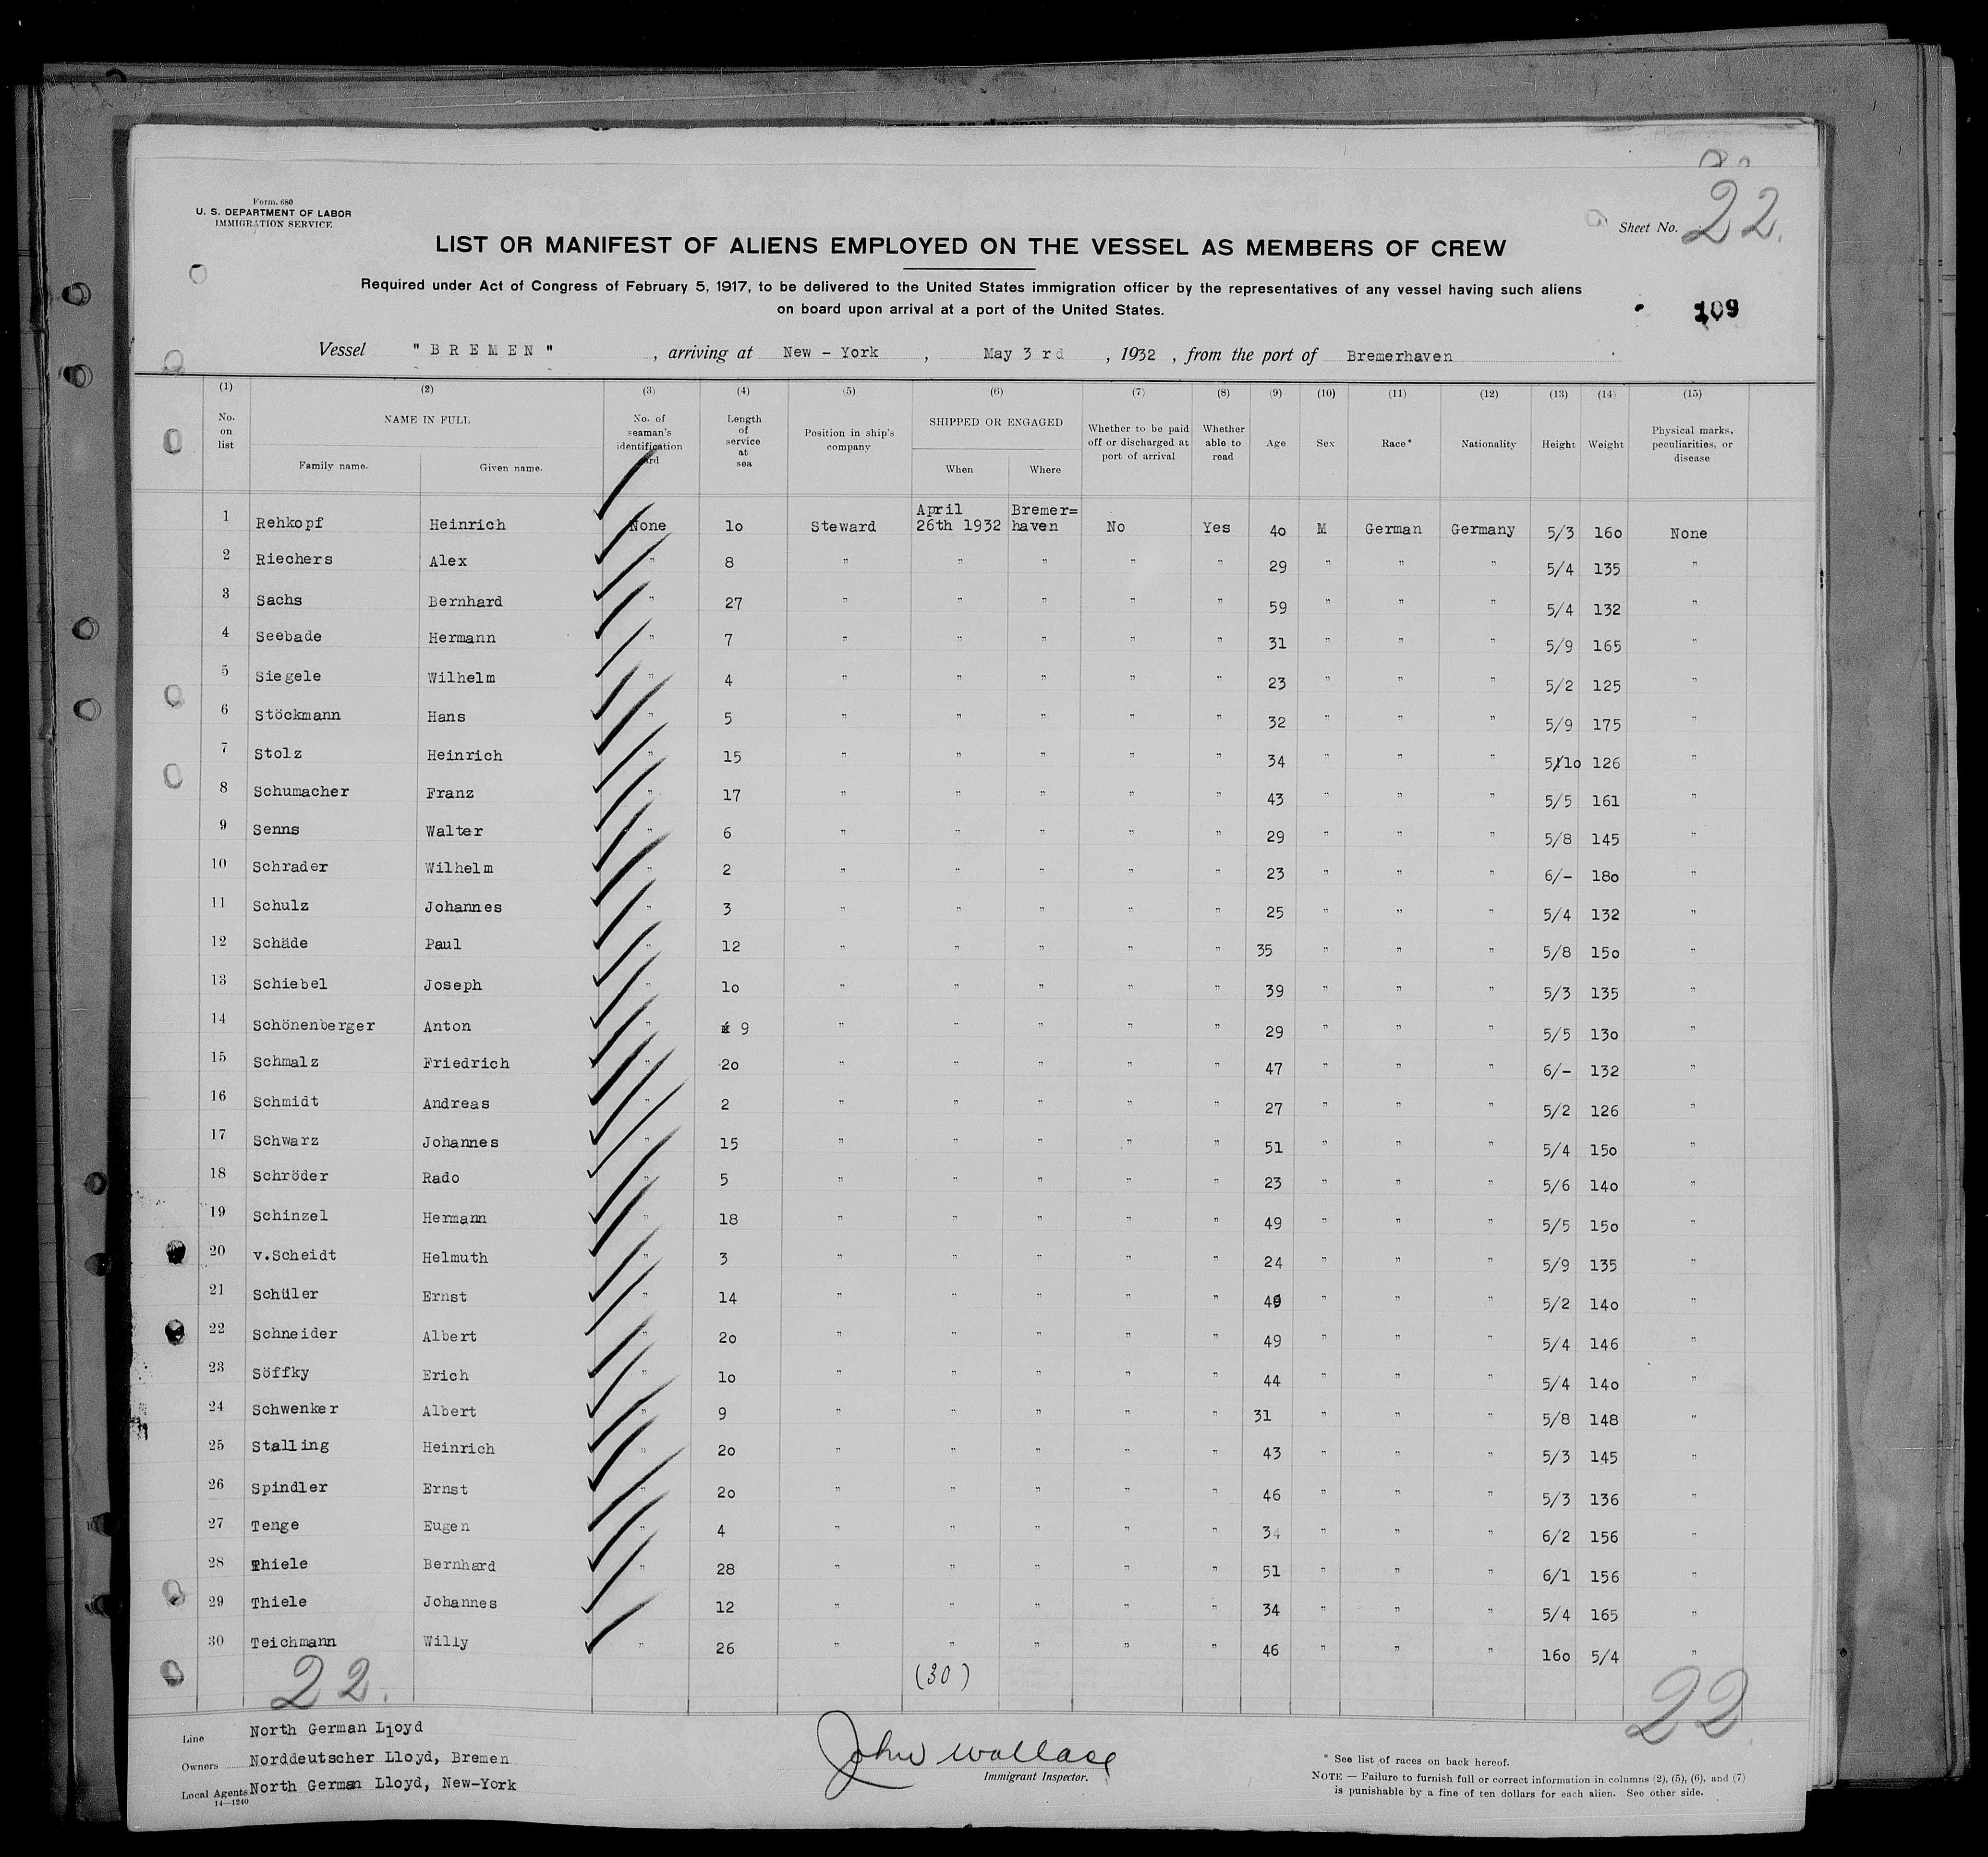 Form 680
U. S. DEPARTMENT OF LABOR
IMMIGRATION SERVICE
Sheet No. 22.
LIST OR MANIFEST OF ALIENS EMPLOYED ON THE VESSEL AS MEMBERS OF CREW
Required under Act of Congress of February 5, 1917, to be delivered to the United States immigration officer by the representatives of any vessel having such aliens
on board upon arrival at a port of the United States.
109
Vessel "BREMEN", arriving at New - York, May 3 rd, 1932, from the port of Bremerhaven
(1) (2) (3) (4) (5) (6) (7) (8) (9) (10) (11) (12) (13) (14) (15)
No. on list NAME IN FULL Family name. Given name. No. of seaman's identification card Length of service at sea Position in ship's company SHIPPED OR ENGAGED When Where Whether to be paid off or discharged at port of arrival Whether able to read Age Sex Race* Nationality Height Weight Physical marks, peculiarities, or disease
1 Rehkopf Heinrich None 10 Steward April 26th 1932 Bremer=haven No Yes 40 M German Germany 5/3 160 None
2 Riechers Alex " 8 " " " " " 29 " " " 5/4 135 "
3 Sachs Bernhard " 27 " " " " " 59 " " " 5/4 132 "
4 Seebade Hermann " 7 " " " " " 31 " " " 5/9 165 "
5 Siegele Wilhelm " 4 " " " " " 23 " " " 5/2 125 "
6 Stöckmann Hans " 5 " " " " " 32 " " " 5/9 175 "
7 Stolz Heinrich " 15 " " " " " 34 " " " 5/10 126 "
8 Schumacher Franz " 17 " " " " " 43 " " " 5/5 161 "
9 Senns Walter " 6 " " " " " 29 " " " 5/8 145 "
10 Schrader Wilhelm " 2 " " " " " 23 " " " 6/- 180 "
11 Schulz Johannes " 3 " " " " " 25 " " " 5/4 132 "
12 Schäde Paul " 12 " " " " " 35 " " " 5/8 150 "
13 Schiebel Joseph " 10 " " " " " 39 " " " 5/3 135 "
14 Schönenberger Anton " 9 " " " " " 29 " " " 5/5 130 "
15 Schmalz Friedrich " 20 " " " " " 47 " " " 6/- 132 "
16 Schmidt Andreas " 2 " " " " " 27 " " " 5/2 126 "
17 Schwarz Johannes " 15 " " " " " 51 " " " 5/4 150 "
18 Schröder Rado " 5 " " " " " 23 " " " 5/6 140 "
19 Schinzel Hermann " 18 " " " " " 49 " " " 5/5 150 "
20 v.Scheidt Helmuth " 3 " " " " " 24 " " " 5/9 135 "
21 Schüler Ernst " 14 " " " " " " " " 5/2 140 "
22 Schneider Albert " 20 " " " " " 49 " " " 5/4 146 "
23 Söffky Erich " 10 " " " " " 44 " " " 5/4 140 "
24 Schwenker Albert " 9 " " " " " 31 " " " 5/8 148 "
25 Stalling Heinrich " 20 " " " " " 43 " " " 5/3 145 "
26 Spindler Ernst " 20 " " " " " 46 " " " 5/3 136 "
27 Tenge Eugen " 4 " " " " " 34 " " " 6/2 156 "
28 Thiele Bernhard " 28 " " " " " 51 " " " 6/1 156 "
29 Thiele Johannes " 12 " " " " " 34 " " " 5/4 165 "
30 Teichmann Willy " 26 " " " " " 46 " " " 160 5/4 "
22. (30) 22
Line North German Lloyd
Owners Norddeutscher Lloyd, Bremen
Local Agents North German Lloyd, New-York
14—1240
John Wallace
Immigrant Inspector.
* See list of races on back hereof.
NOTE — Failure to furnish full or correct information in columns (2), (5), (6), and (7)
is punishable by a fine of ten dollars for each alien. See other side.